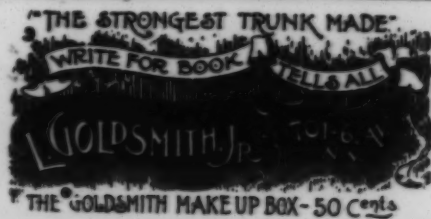 "THE STRONGEST TRUNK MADE"
WRITE FOR BOOK
TELLS ALL
L. GOLDSMITH, Jr.
701-6
THE GOLDSMITH MAKE UP BOX - 50 Cents